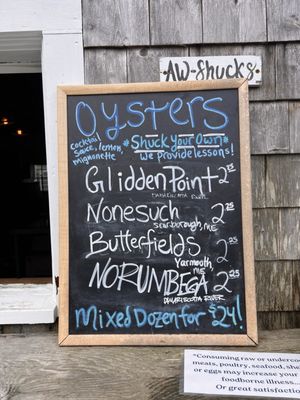 AW-Shucks!
Oysters
cocktail sauce, lemon, mignonette
*Shuck Your Own*
We provide lessons!
Glidden Point 2.25
Damariscotta River
Nonesuch 2.25
Scarborough, ME
Butterfields 2.25
Yarmouth, ME
NORUMBEGA 2.25
DAMARISCOTTA RIVER
Mixed Dozen for $24!
*Consuming raw or underco
meats, poultry, seafood, she
or eggs may increase your
foodborne illness...
Or great satisfactio